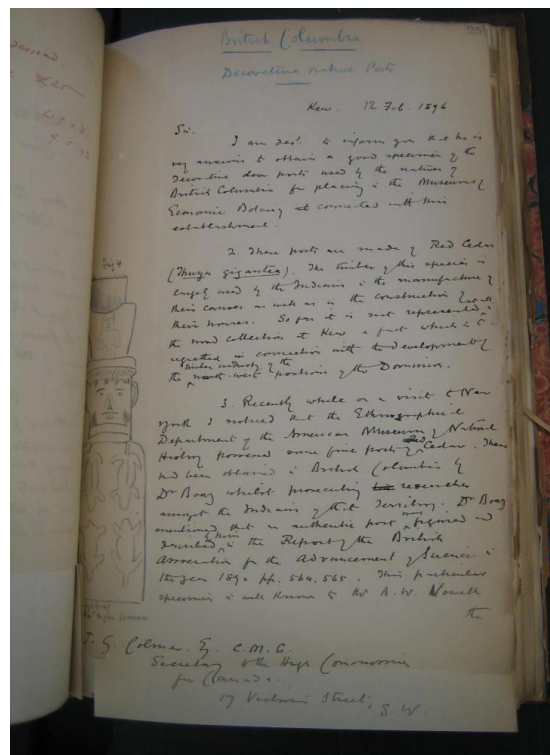 British Columbia
Decorative native Posts
Kew. 12 Feb. 1896
Sir.
I am des^d. to inform you that he is
very anxious to obtain a good specimen of the
decorative door posts used by the natives of
British Columbia for placing in the Museums of
Economic Botany connected with this
establishment.
2. These posts are made of Red Cedar
(Thuya gigantea). The timber of this species is
largely used by the Indians in the manufacture of
their canoes as well as in the construction of
their houses. So far it is not represented in
the wood collection at Kew a fact which is to be
regretted in connection with the development of
the timber industry of the north-west portions of the Dominion.
3. Recently while on a visit to New
York I noticed that the Ethnographical
Department of the American Museum of Natural
History possessed some fine posts of Red Cedar. These
had been obtained in British Columbia by
Dr Boas whilst prosecuting researches
amongst the Indians of that Territory. Dr Boas
mentioned that an authentic post was figured and
described in the Report of the British
Association for the Advancement of Science in
the year 1890 pp. 564, 565. This particular
specimen is well known to Mr A. W. Vowell
the
J. G. Colmer. Esq. C.M.G.
Secretary to the High Commissioner
for Canada.
17 Victoria Street, S.W.
Fig 4